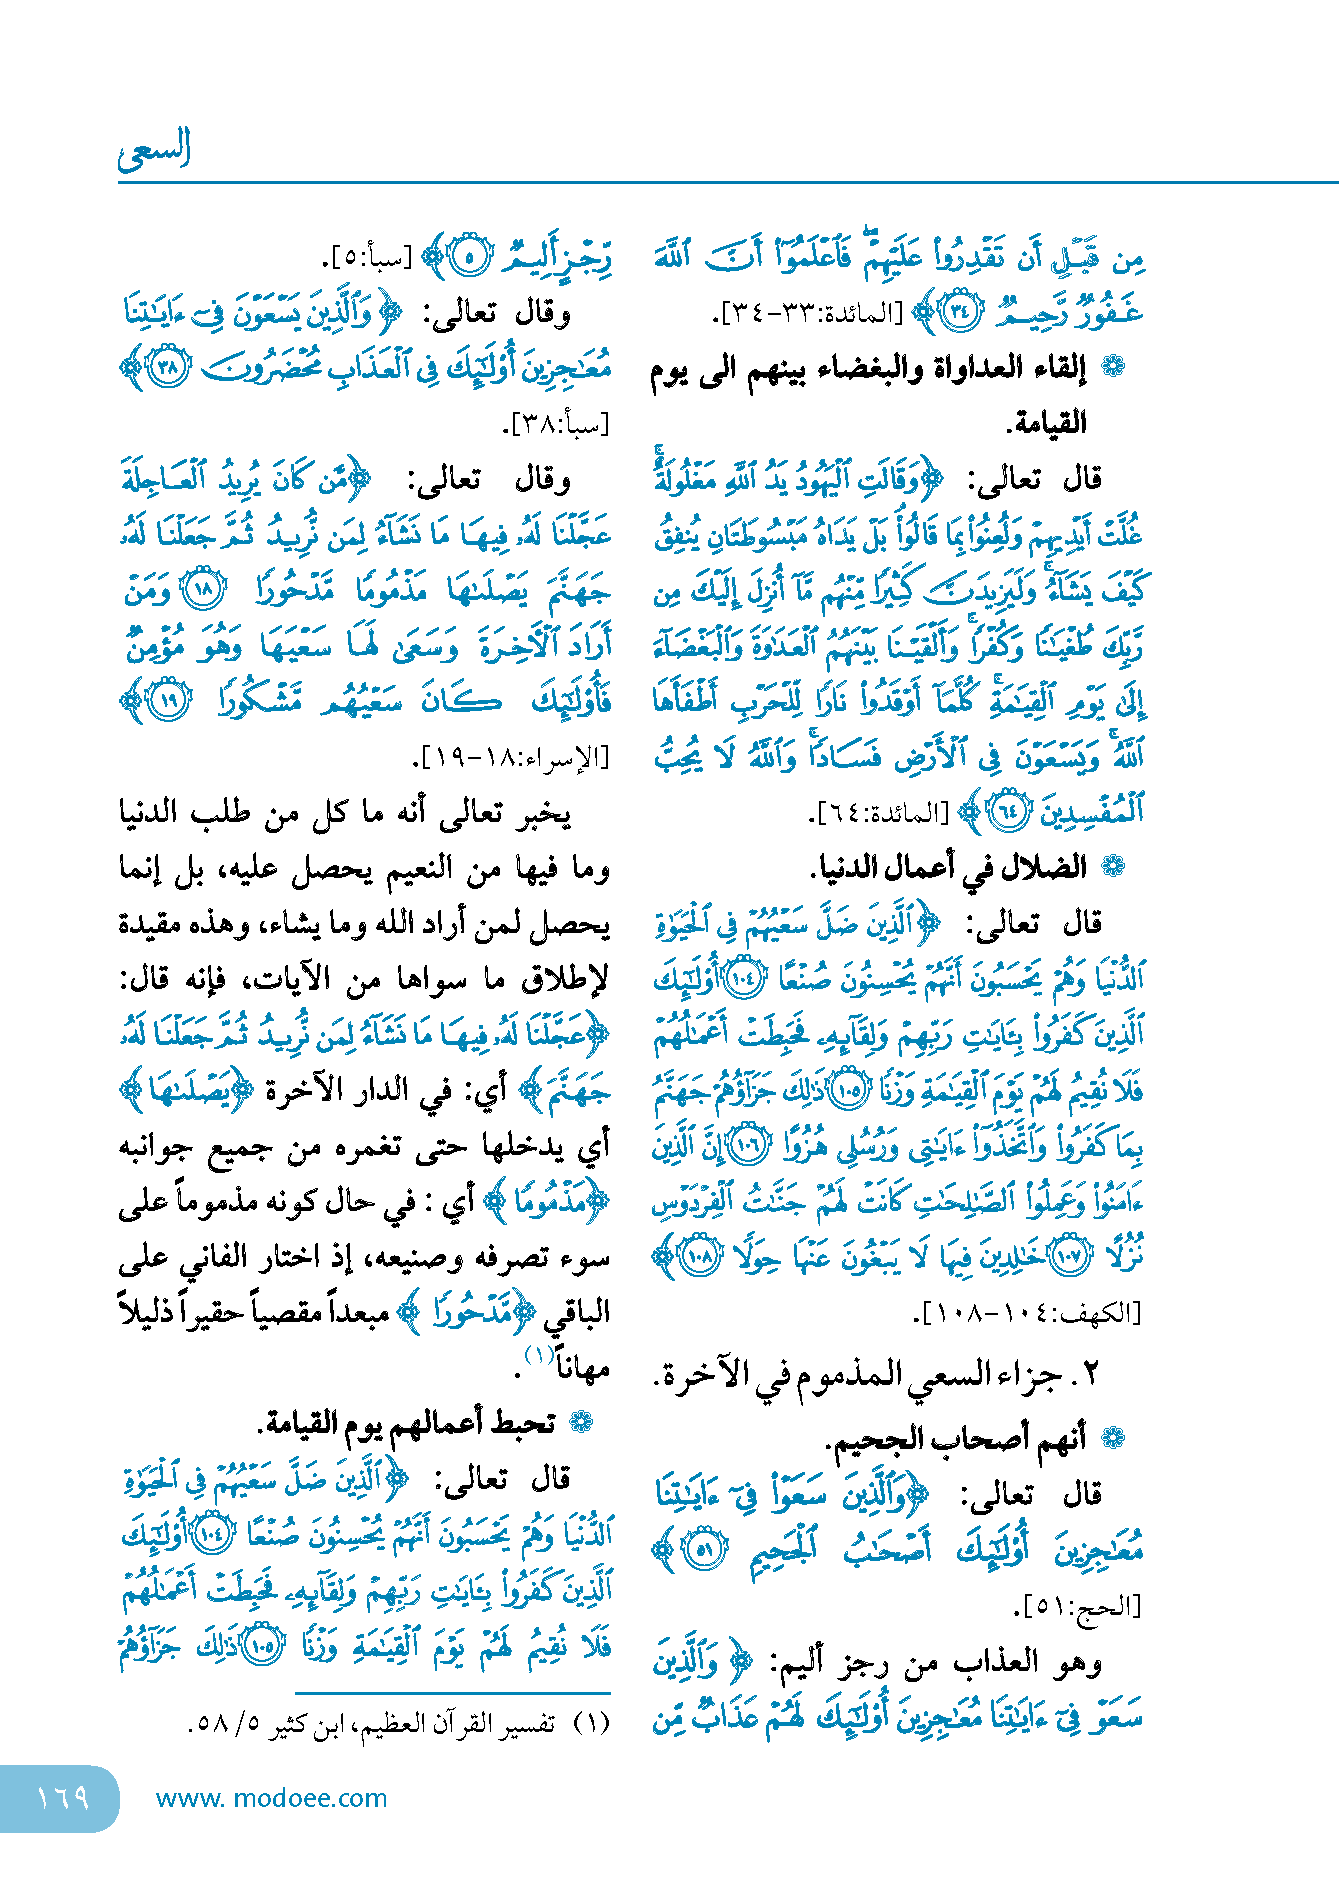 السعي
مِن قَبْلِ أَن تَقْدِرُوا۟ عَلَيْهِمْ ۖ فَٱعْلَمُوٓا۟ أَنَّ ٱللَّهَ
غَفُورٌ رَّحِيمٌ ﴿٣٤﴾ [المائدة:٣٣-٣٤].
❁ إلقاء العداوة والبغضاء بينهم الى يوم
القيامة.
قال تعالى: ﴿وَقَالَتِ ٱلْيَهُودُ يَدُ ٱللَّهِ مَغْلُولَةٌ ۚ
غُلَّتْ أَيْدِيهِمْ وَلُعِنُوا۟ بِمَا قَالُوا۟ ۘ بَلْ يَدَاهُ مَبْسُوطَتَانِ يُنفِقُ
كَيْفَ يَشَآءُ ۚ وَلَيَزِيدَنَّ كَثِيرًا مِّنْهُم مَّآ أُنزِلَ إِلَيْكَ مِن
رَّبِّكَ طُغْيَٰنًا وَكُفْرًا ۚ وَأَلْقَيْنَا بَيْنَهُمُ ٱلْعَدَٰوَةَ وَٱلْبَغْضَآءَ
إِلَىٰ يَوْمِ ٱلْقِيَٰمَةِ ۚ كُلَّمَآ أَوْقَدُوا۟ نَارًا لِّلْحَرْبِ أَطْفَأَهَا
ٱللَّهُ ۚ وَيَسْعَوْنَ فِى ٱلْأَرْضِ فَسَادًا ۚ وَٱللَّهُ لَا يُحِبُّ
ٱلْمُفْسِدِينَ ﴿٦٤﴾ [المائدة:٦٤].
❁ الضلال في أعمال الدنيا.
قال تعالى: ﴿ٱلَّذِينَ ضَلَّ سَعْيُهُمْ فِى ٱلْحَيَوٰةِ
ٱلدُّنْيَا وَهُمْ يَحْسَبُونَ أَنَّهُمْ يُحْسِنُونَ صُنْعًا ﴿١٠٤﴾ أُو۟لَٰٓئِكَ
ٱلَّذِينَ كَفَرُوا۟ بِـَٔايَٰتِ رَبِّهِمْ وَلِقَآئِهِۦ فَحَبِطَتْ أَعْمَٰلُهُمْ
فَلَا نُقِيمُ لَهُمْ يَوْمَ ٱلْقِيَٰمَةِ وَزْنًا ﴿١٠٥﴾ ذَٰلِكَ جَزَآؤُهُمْ جَهَنَّمُ
بِمَا كَفَرُوا۟ وَٱتَّخَذُوٓا۟ ءَايَٰتِى وَرُسُلِى هُزُوًا ﴿١٠٦﴾ إِنَّ ٱلَّذِينَ
ءَامَنُوا۟ وَعَمِلُوا۟ ٱلصَّٰلِحَٰتِ كَانَتْ لَهُمْ جَنَّٰتُ ٱلْفِرْدَوْسِ
نُزُلًا ﴿١٠٧﴾ خَٰلِدِينَ فِيهَا لَا يَبْغُونَ عَنْهَا حِوَلًا ﴿١٠٨﴾
[الكهف:١٠٤-١٠٨].
٢. جزاء السعي المذموم في الآخرة.
❁ أنهم أصحاب الجحيم.
قال تعالى: ﴿وَٱلَّذِينَ سَعَوْا۟ فِىٓ ءَايَٰتِنَا
مُعَٰجِزِينَ أُو۟لَٰٓئِكَ أَصْحَٰبُ ٱلْجَحِيمِ ﴿٥١﴾
[الحج:٥١].
وهو العذاب من رجز أليم: ﴿وَٱلَّذِينَ
سَعَوْ فِىٓ ءَايَٰتِنَا مُعَٰجِزِينَ أُو۟لَٰٓئِكَ لَهُمْ عَذَابٌ مِّن
رِّجْزٍ أَلِيمٌ ﴿٥﴾ [سبأ:٥].
وقال تعالى: ﴿وَٱلَّذِينَ يَسْعَوْنَ فِىٓ ءَايَٰتِنَا
مُعَٰجِزِينَ أُو۟لَٰٓئِكَ فِى ٱلْعَذَابِ مُحْضَرُونَ ﴿٣٨﴾
[سبأ:٣٨].
وقال تعالى: ﴿مَّن كَانَ يُرِيدُ ٱلْعَاجِلَةَ
عَجَّلْنَا لَهُۥ فِيهَا مَا نَشَآءُ لِمَن نُّرِيدُ ثُمَّ جَعَلْنَا لَهُۥ
جَهَنَّمَ يَصْلَىٰهَا مَذْمُومًا مَّدْحُورًا ﴿١٨﴾ وَمَنْ
أَرَادَ ٱلْءَاخِرَةَ وَسَعَىٰ لَهَا سَعْيَهَا وَهُوَ مُؤْمِنٌ
فَأُو۟لَٰٓئِكَ كَانَ سَعْيُهُم مَّشْكُورًا ﴿١٩﴾
[الإسراء:١٨-١٩].
يخبر تعالى أنه ما كل من طلب الدنيا
وما فيها من النعيم يحصل عليه، بل إنما
يحصل لمن أراد الله وما يشاء، وهذه مقيدة
لإطلاق ما سواها من الآيات، فإنه قال:
﴿عَجَّلْنَا لَهُۥ فِيهَا مَا نَشَآءُ لِمَن نُّرِيدُ ثُمَّ جَعَلْنَا لَهُۥ
جَهَنَّمَ﴾ أي: في الدار الآخرة ﴿يَصْلَىٰهَا﴾
أي يدخلها حتى تغمره من جميع جوانبه
﴿مَذْمُومًا﴾ أي : في حال كونه مذموماً على
سوء تصرفه وصنيعه، إذ اختار الفاني على
الباقي ﴿مَّدْحُورًا﴾ مبعداً مقصياً حقيراً ذليلاً
مهاناً(١).
❁ تحبط أعمالهم يوم القيامة.
قال تعالى: ﴿ٱلَّذِينَ ضَلَّ سَعْيُهُمْ فِى ٱلْحَيَوٰةِ
ٱلدُّنْيَا وَهُمْ يَحْسَبُونَ أَنَّهُمْ يُحْسِنُونَ صُنْعًا ﴿١٠٤﴾ أُو۟لَٰٓئِكَ
ٱلَّذِينَ كَفَرُوا۟ بِـَٔايَٰتِ رَبِّهِمْ وَلِقَآئِهِۦ فَحَبِطَتْ أَعْمَٰلُهُمْ
فَلَا نُقِيمُ لَهُمْ يَوْمَ ٱلْقِيَٰمَةِ وَزْنًا ﴿١٠٥﴾ ذَٰلِكَ جَزَآؤُهُمْ
(١) تفسير القرآن العظيم، ابن كثير ٥/ ٥٨.
www. modoee.com
١٦٩